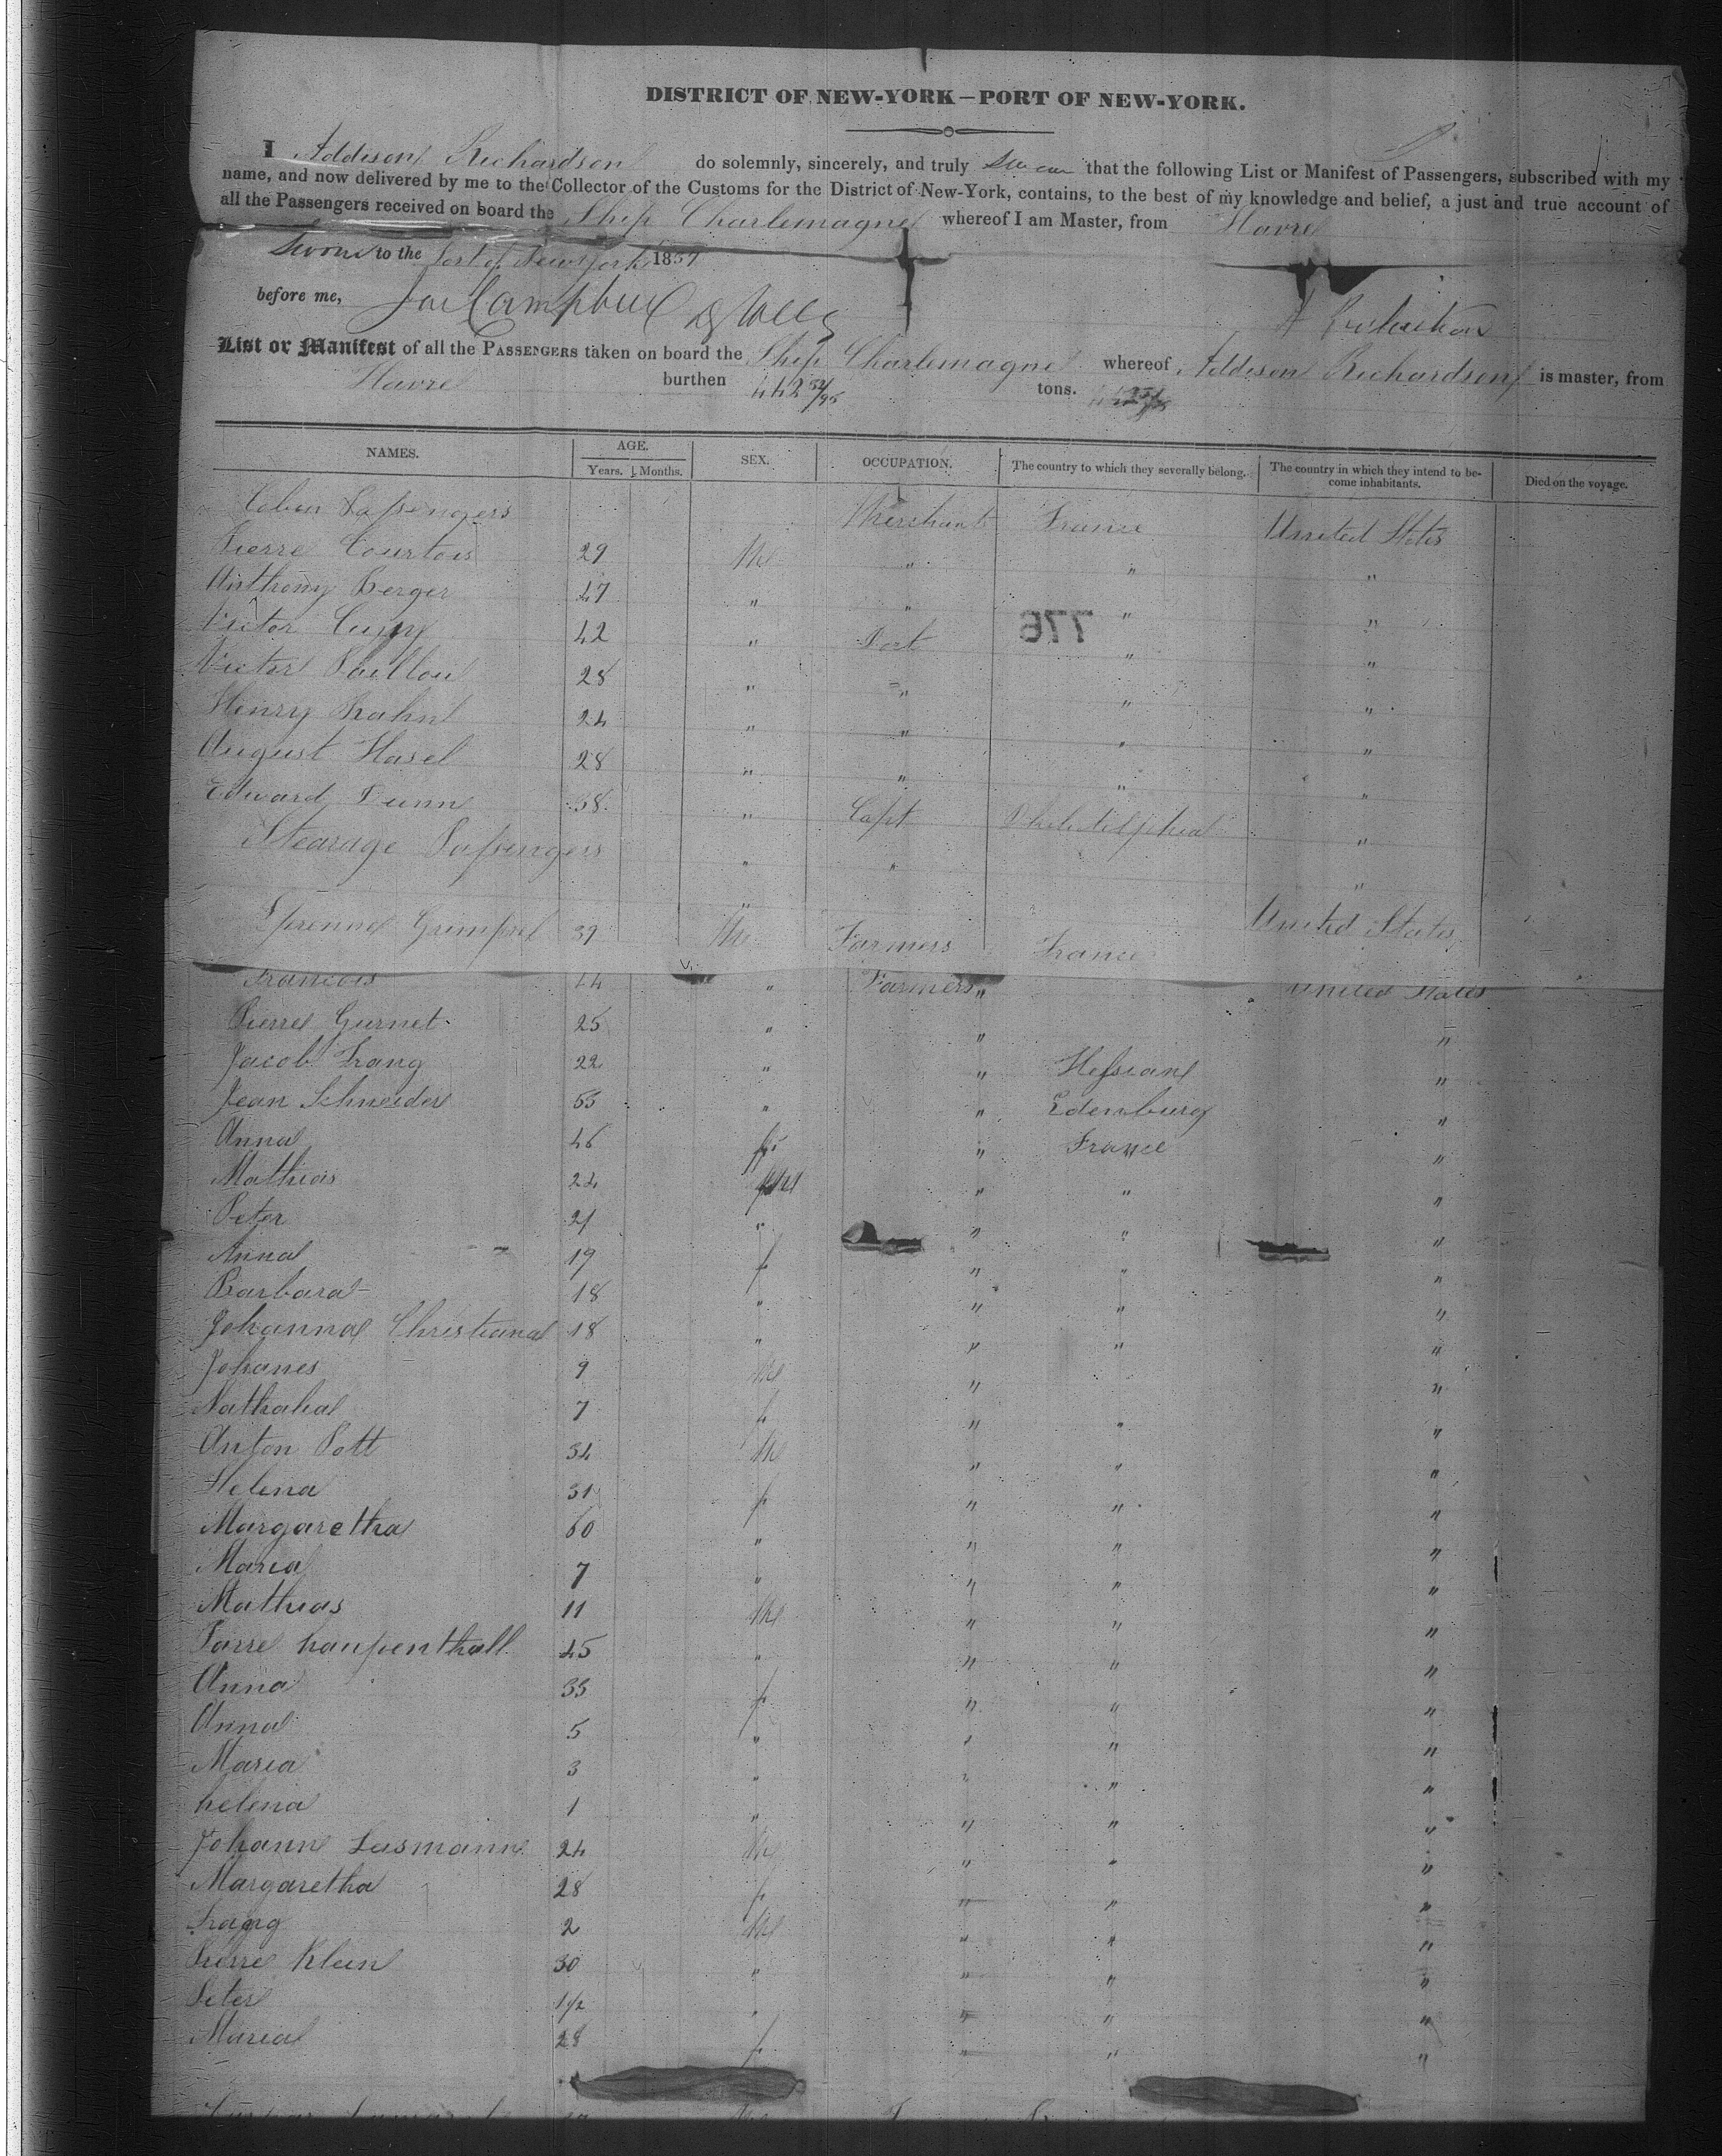 DISTRICT OF NEW-YORK—PORT OF NEW-YORK.
I Addison Richardson do solemnly, sincerely, and truly swear that the following List or Manifest of Passengers, subscribed with my
name, and now delivered by me to the Collector of the Customs for the District of New-York, contains, to the best of my knowledge and belief, a just and true account of
all the Passengers received on board the Ship Charlemagne whereof I am Master, from Havre
Sworn to the Port of New York 1837
before me, Campbell A Richardson
List or Manifest of all the PASSENGERS taken on board the Ship Charlemagne whereof Addison Richardson is master, from
Havre burthen 442 52/95 tons.
NAMES. AGE. SEX. OCCUPATION. The country to which they severally belong. The country in which they intend to be-come inhabitants. Died on the voyage.
Years. Months.
Cabin Passengers Merchants France United States
Pierre Courtois 29 M " " "
Anthony Berger 47 " " " "
Victor Cugny 42 " " "
776
Victor 28 " " " "
Henry 24 " " " "
August Hasel 28 " " " "
Edward Dunn 38 " Capt Philadelphia "
Stearage Passengers " " "
Grimprel 39 M Farmers France United States
Francois 44 " Farmers " United States
Pierre Gurnet 25 " " "
Jacob Frang 22 " " Hessian "
Jean Schneider 55 " " Edenburg "
Anna 46 f " France "
Mathias 24 M " " "
Peter 21 " " " "
Anna 19 f " " "
Barbara 18 " " " "
Johanna Christiana 18 " " " "
Johanes 9 M " "
Nathalia 7 f " " "
Anton Pott 34 M " " "
Helena 31 f " " "
Margaretha 60 " " " "
Maria 7 " " " "
Mathias 11 M " " "
haupenthall 45 " " " "
Anna 35 f " " "
Anna 5 " " " "
Maria 3 " " " "
helena 1 " " " "
Johann Lusmann 24 M " " "
Margaretha 28 f " " "
Frang 2 M " " "
Pierre Klein 30 " " " "
Peter 1 1/2 " " " "
Maria 28 f " " "